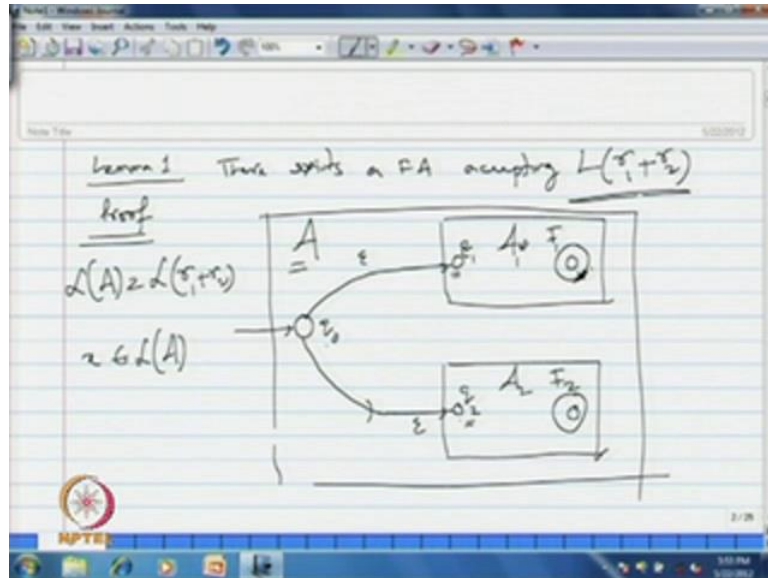 Note1 - Windows Journal
File Edit View Insert Actions Tools Help
Note Title
5/22/2012
Lemma 1 There exists a FA accepting L(r₁+r₂)
Proof
A
ε
q₁
A₁
F₁
L(A) = L(r₁+r₂)
q₀
x ∈ L(A)
ε
q₂
A₂
F₂
NPTEL
2/25
5:03 PM
5/22/2012